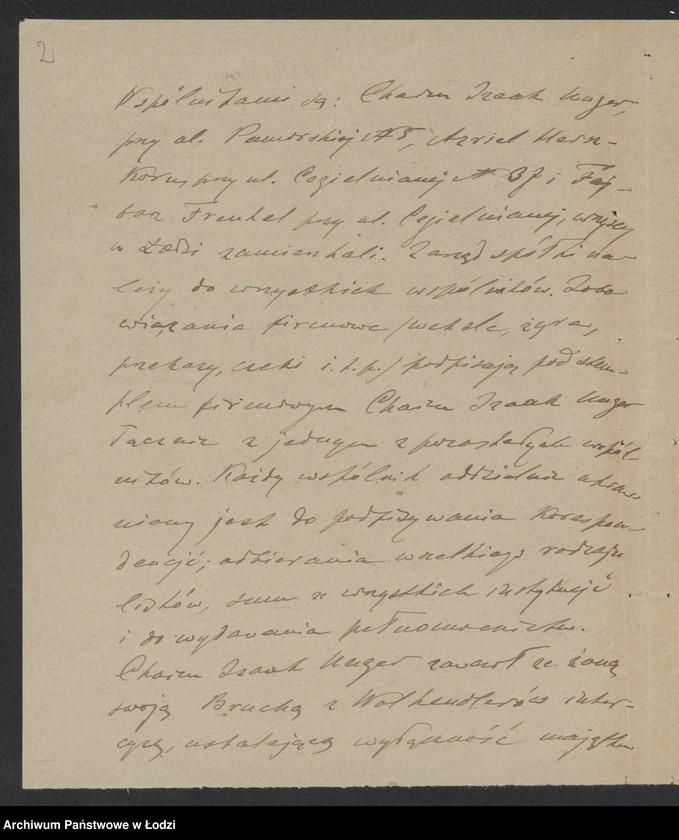 2
Wspólnikami są: Chaim Izaak Unger,
przy ul. Pomorskiej № 5, Azriel Hersz
Korn, przy ul. Cegielnianej № i Faj-
Frenkel przy ul. Cegielnianej, wszyscy
w Łodzi zamieszkali. Zarząd spółki na-
leży do wszystkich wspólników. Zobo
wiązania firmowe /weksle, żyra,
przekazy, czeki i.t.p./ podpisują pod stem-
plem firmowym Chaim Izaak Unger
łącznie z jednym z pozostałych wspól-
ników. Każdy wspólnik oddzielnie upraw
niony jest do podpisywania korespon-
dencji; odbierania wszelkiego rodzaju
listów, sum z wszystkich instytucji
i do wydawania pełnomocnictw.
Chaim Izaak Unger zawarł ze żoną
swoją Bruchą z Wolhendlerów inter-
cyzę, ustalającą wyłączność majątku
Archiwum Państwowe w Łodzi